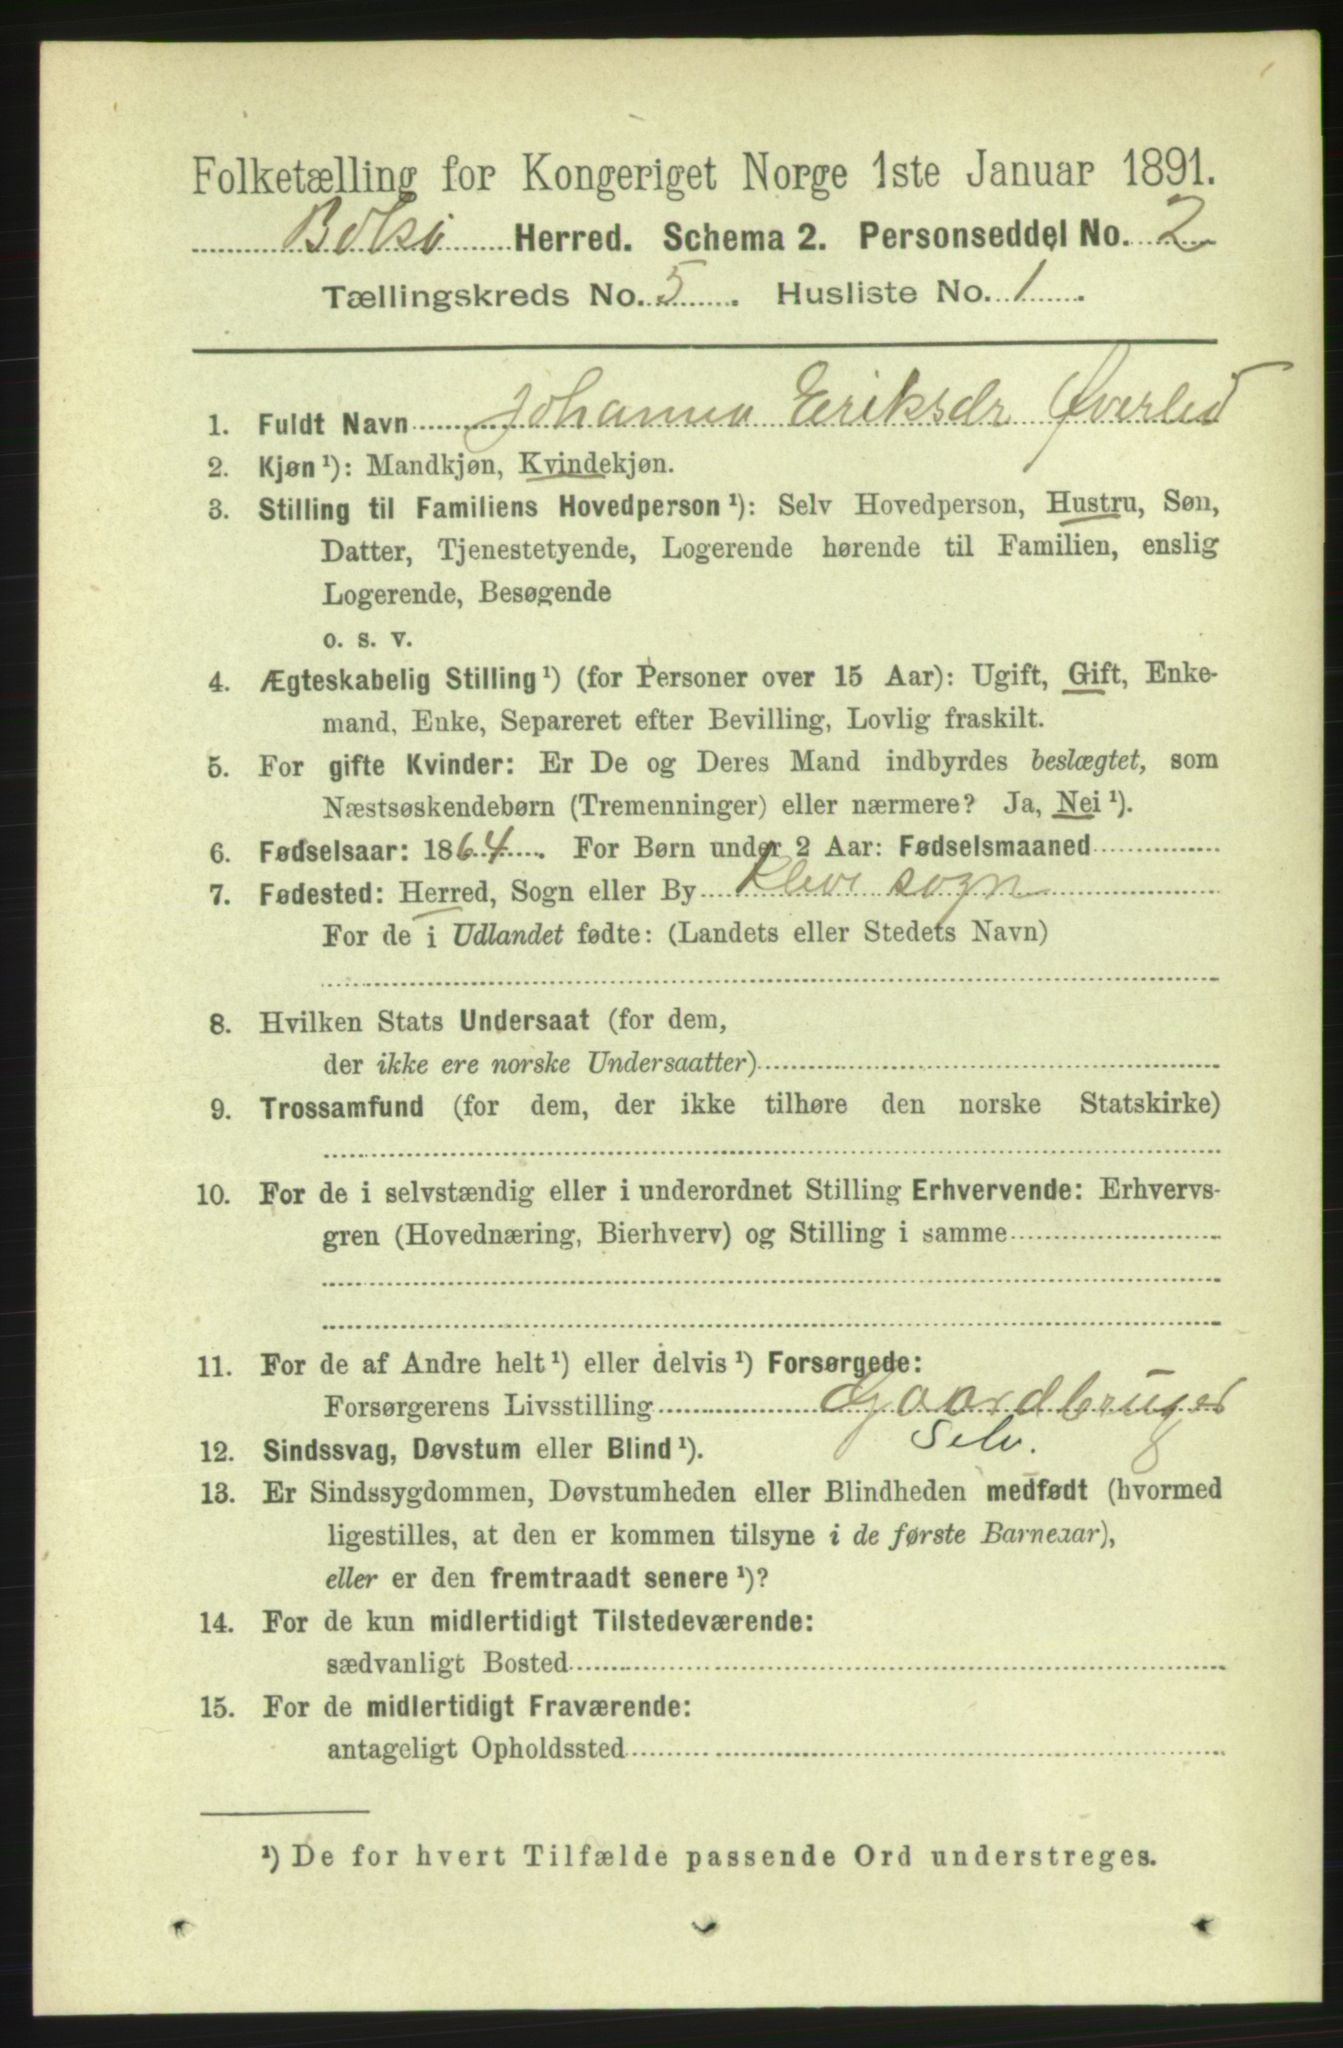 Folketælling for Kongeriget Norge 1ste Januar 1891.
Bolsø Herred. Schema 2. Personseddel No. 2
Tællingskreds No. 5. Husliste No. 1.
1. Fuldt Navn Johanna Eriksdr Øverlid
2. Kjøn ¹): Mandkjøn, Kvindekjøn.
3. Stilling til Familiens Hovedperson ¹): Selv Hovedperson, Hustru, Søn,
Datter, Tjenestetyende, Logerende hørende til Familien, enslig
Logerende, Besøgende
o. s. v.
4. Ægteskabelig Stilling ¹) (for Personer over 15 Aar): Ugift, Gift, Enke-
mand, Enke, Separeret efter Bevilling, Lovlig fraskilt.
5. For gifte Kvinder: Er De og Deres Mand indbyrdes beslægtet, som
Næstsøskendebørn (Tremenninger) eller nærmere? Ja, Nei ¹).
6. Fødselsaar: 1864. For Børn under 2 Aar: Fødselsmaaned
7. Fødested: Herred, Sogn eller By Kleve sogn
For de i Udlandet fødte: (Landets eller Stedets Navn)
8. Hvilken Stats Undersaat (for dem,
der ikke ere norske Undersaatter)
9. Trossamfund (for dem, der ikke tilhøre den norske Statskirke)
10. For de i selvstændig eller i underordnet Stilling Erhvervende: Erhvervs-
gren (Hovednæring, Bierhverv) og Stilling i samme
11. For de af Andre helt ¹) eller delvis ¹) Forsørgede:
Forsørgerens Livsstilling Gaardbruger
Selv.
12. Sindssvag, Døvstum eller Blind ¹).
13. Er Sindssygdommen, Døvstumheden eller Blindheden medfødt (hvormed
ligestilles, at den er kommen tilsyne i de første Barneaar),
eller er den fremtraadt senere ¹)?
14. For de kun midlertidigt Tilstedeværende:
sædvanligt Bosted
15. For de midlertidigt Fraværende:
antageligt Opholdssted
¹) De for hvert Tilfælde passende Ord understreges.